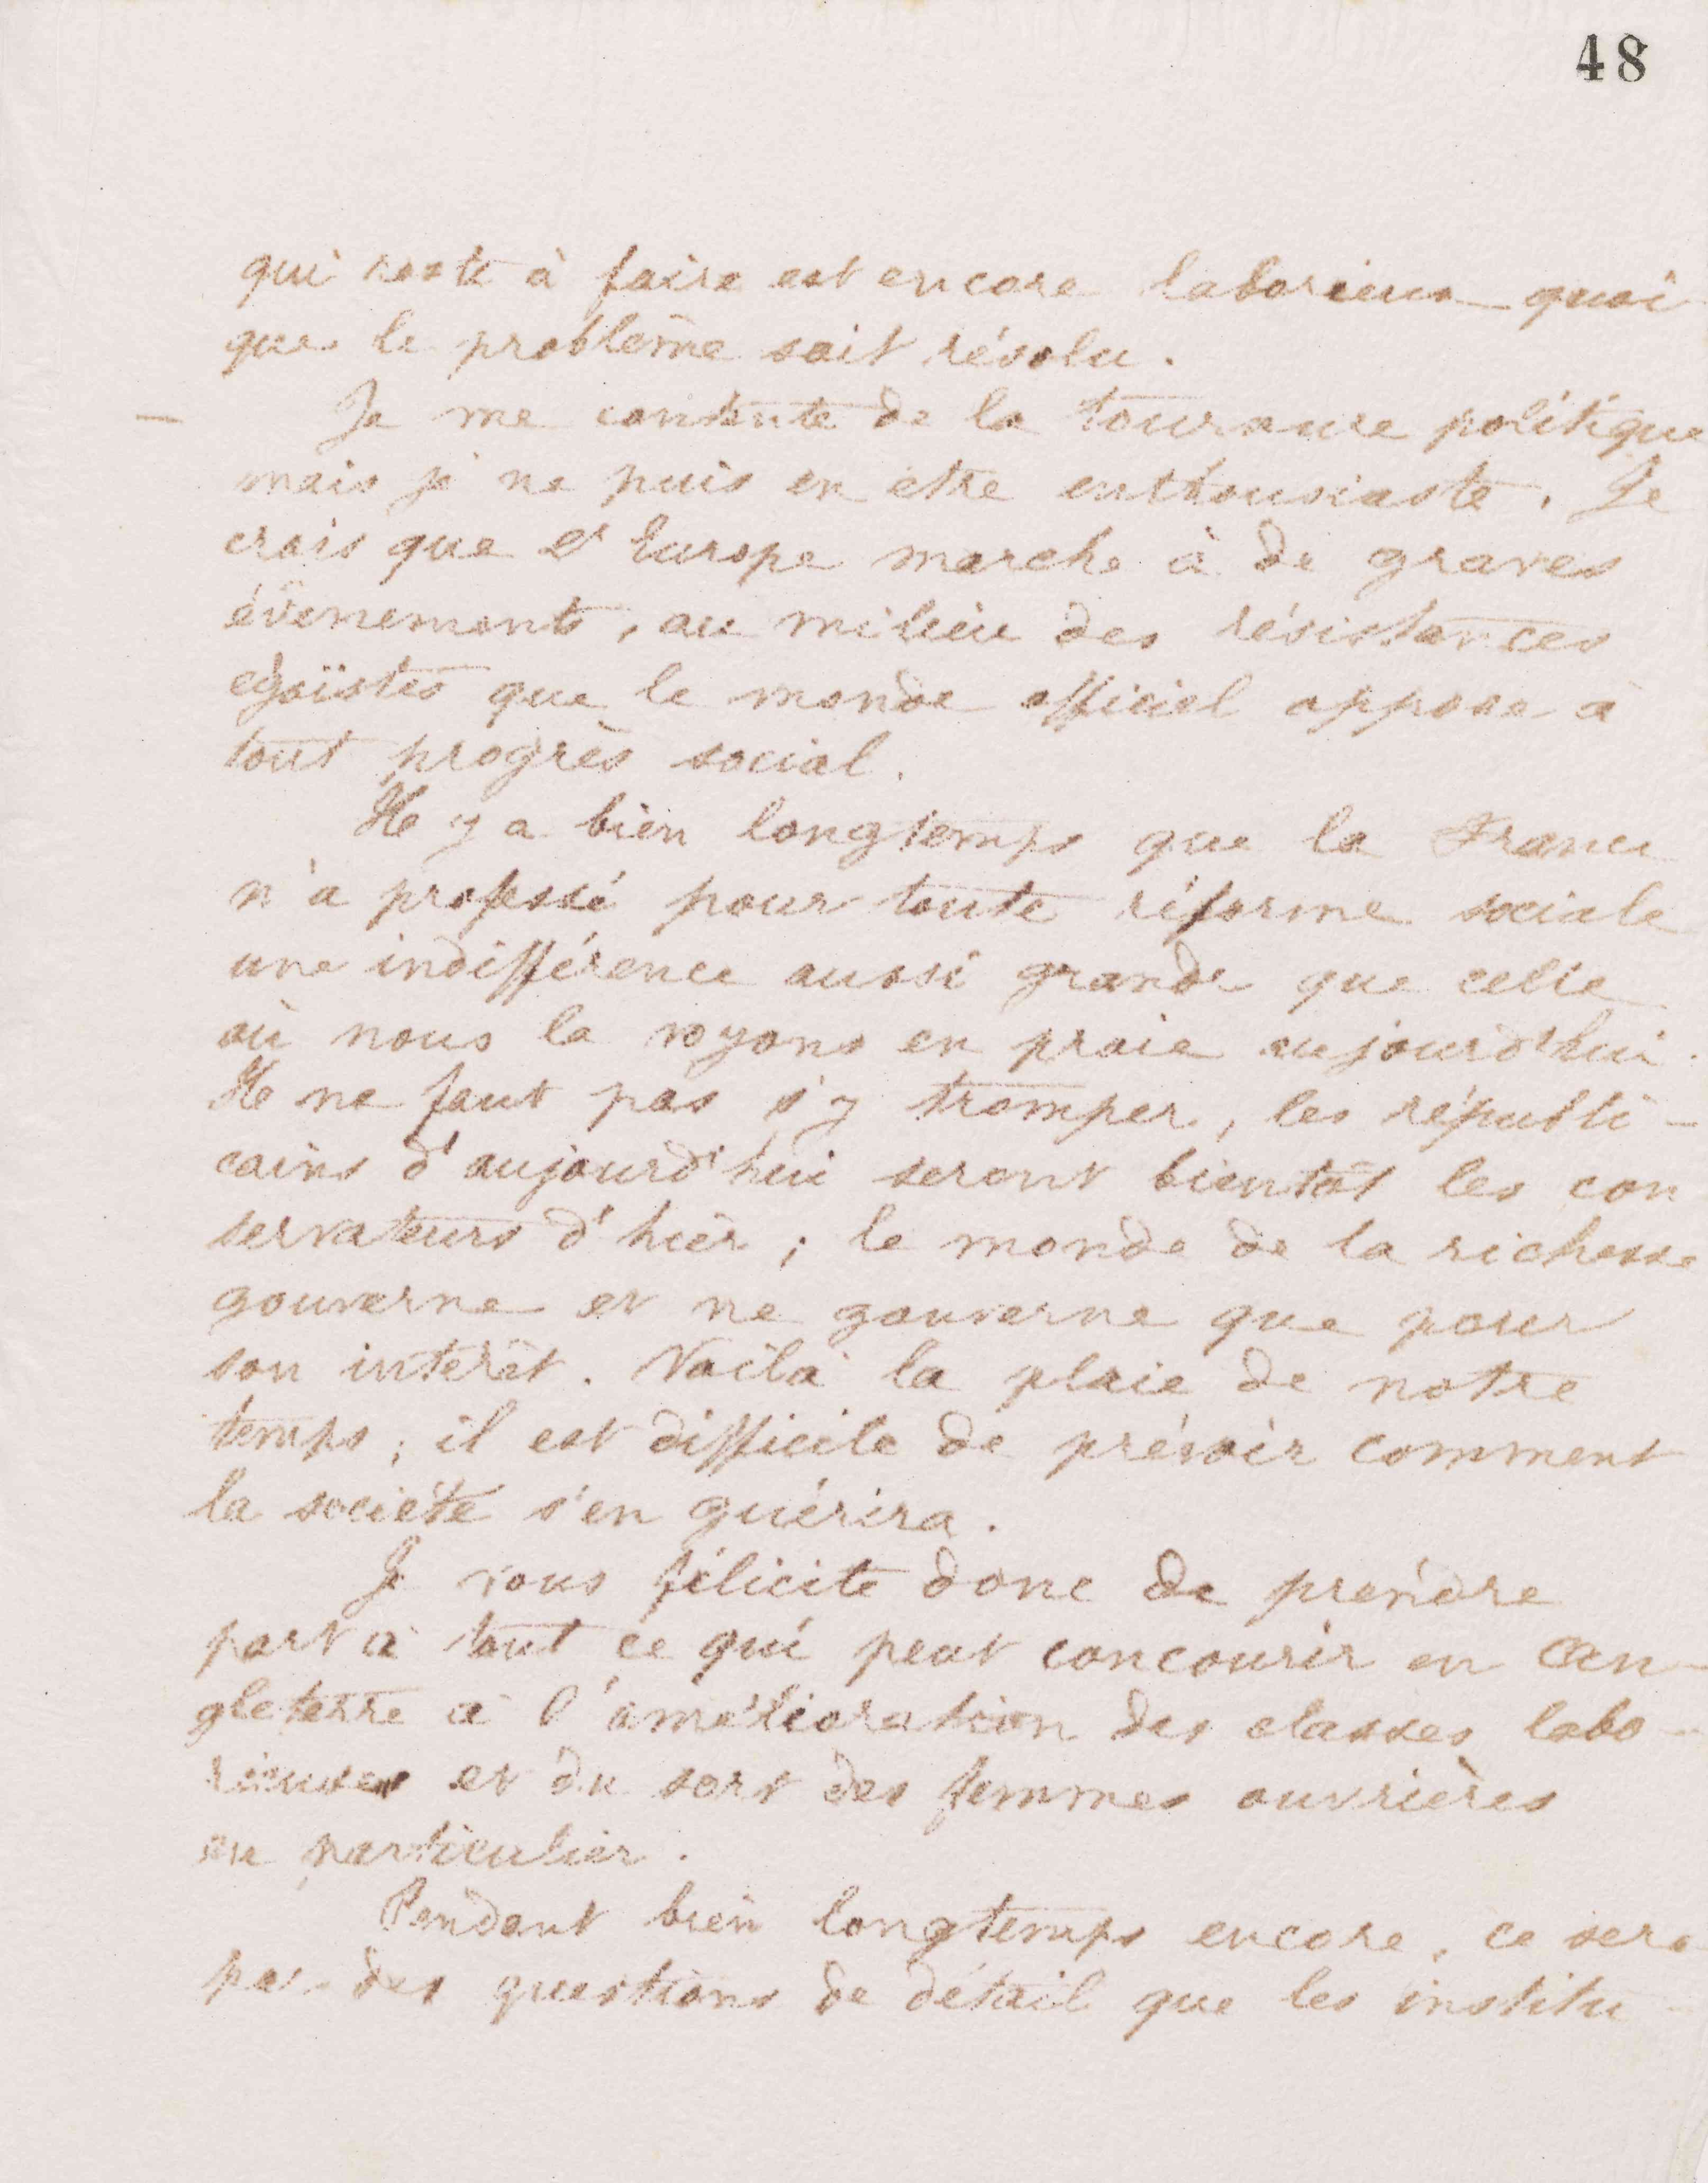 48
qui reste à faire est encore laborieux quoi
que le problême soit résolu.
— Je me contente de la tournure politique
mais je ne puis en être enthousiaste. Je
crois que l'Europe marche à de graves
évènements, au milieu des résistances
egoïstes que le monde officiel oppose à
tout progrès social.
Il y a bien longtemps que la France
n'a professé pour toute réforme sociale
une indifférence aussi grande que celle
où nous la voyons en proie aujourd'hui.
Il ne faut pas s'y tromper, les républi-
cains d'aujourd'hui seront bientôt les con
servateurs d'hier ; le monde de la richesse
gouverne et ne gouverne que pour
son intérêt. Voilà la plaie de notre
temps ; il est difficile de prévoir comment
la société s'en guérira.
Je vous félicite donc de prendre
part à tout ce qui peut concourir en An-
gleterre à l'amélioration des classes labo-
rieuses et du sort des femmes ouvrières
en particulier.
Pendant bien longtemps encore, ce sera
par des questions de détail que les institu-